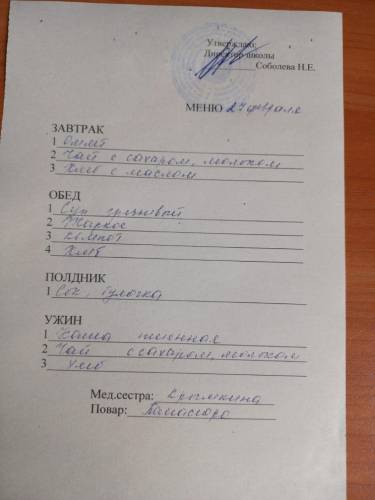 Утверждаю:
Директор школы
Соболева Н.Е.
МЕНЮ 24 февраля
ЗАВТРАК
1 Омлет
2 Чай с сахаром, молоком
3 Хлеб с маслом
ОБЕД
1 Суп гречневый
2 Жаркое
3 Компот
4 Хлеб
ПОЛДНИК
1 Сок, булочка
УЖИН
1 Каша пшенная
2 Чай с сахаром, молоком
3 Хлеб
Мед.сестра:
Повар: